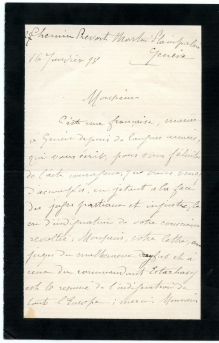 Chemin Revort Thorlon Plainpalais
Genève
16 Janvier 98
Monsieur
C'est une française, mariée
à Genève depuis de longues années,
qui vous écrit, pour vous féliciter
de l'acte courageux, que vous venez
d'accomplir, en jetant à la face
des juges partiaux et injustes, le
cri d'indignation de votre conscience
révoltée. Monsieur, votre lettre, aux
juges du malheureux Dreyfus et à
ceux du commandant Estarhazy
est le résumé de l'indignation de
toute l'Europe; merci, Monsieur